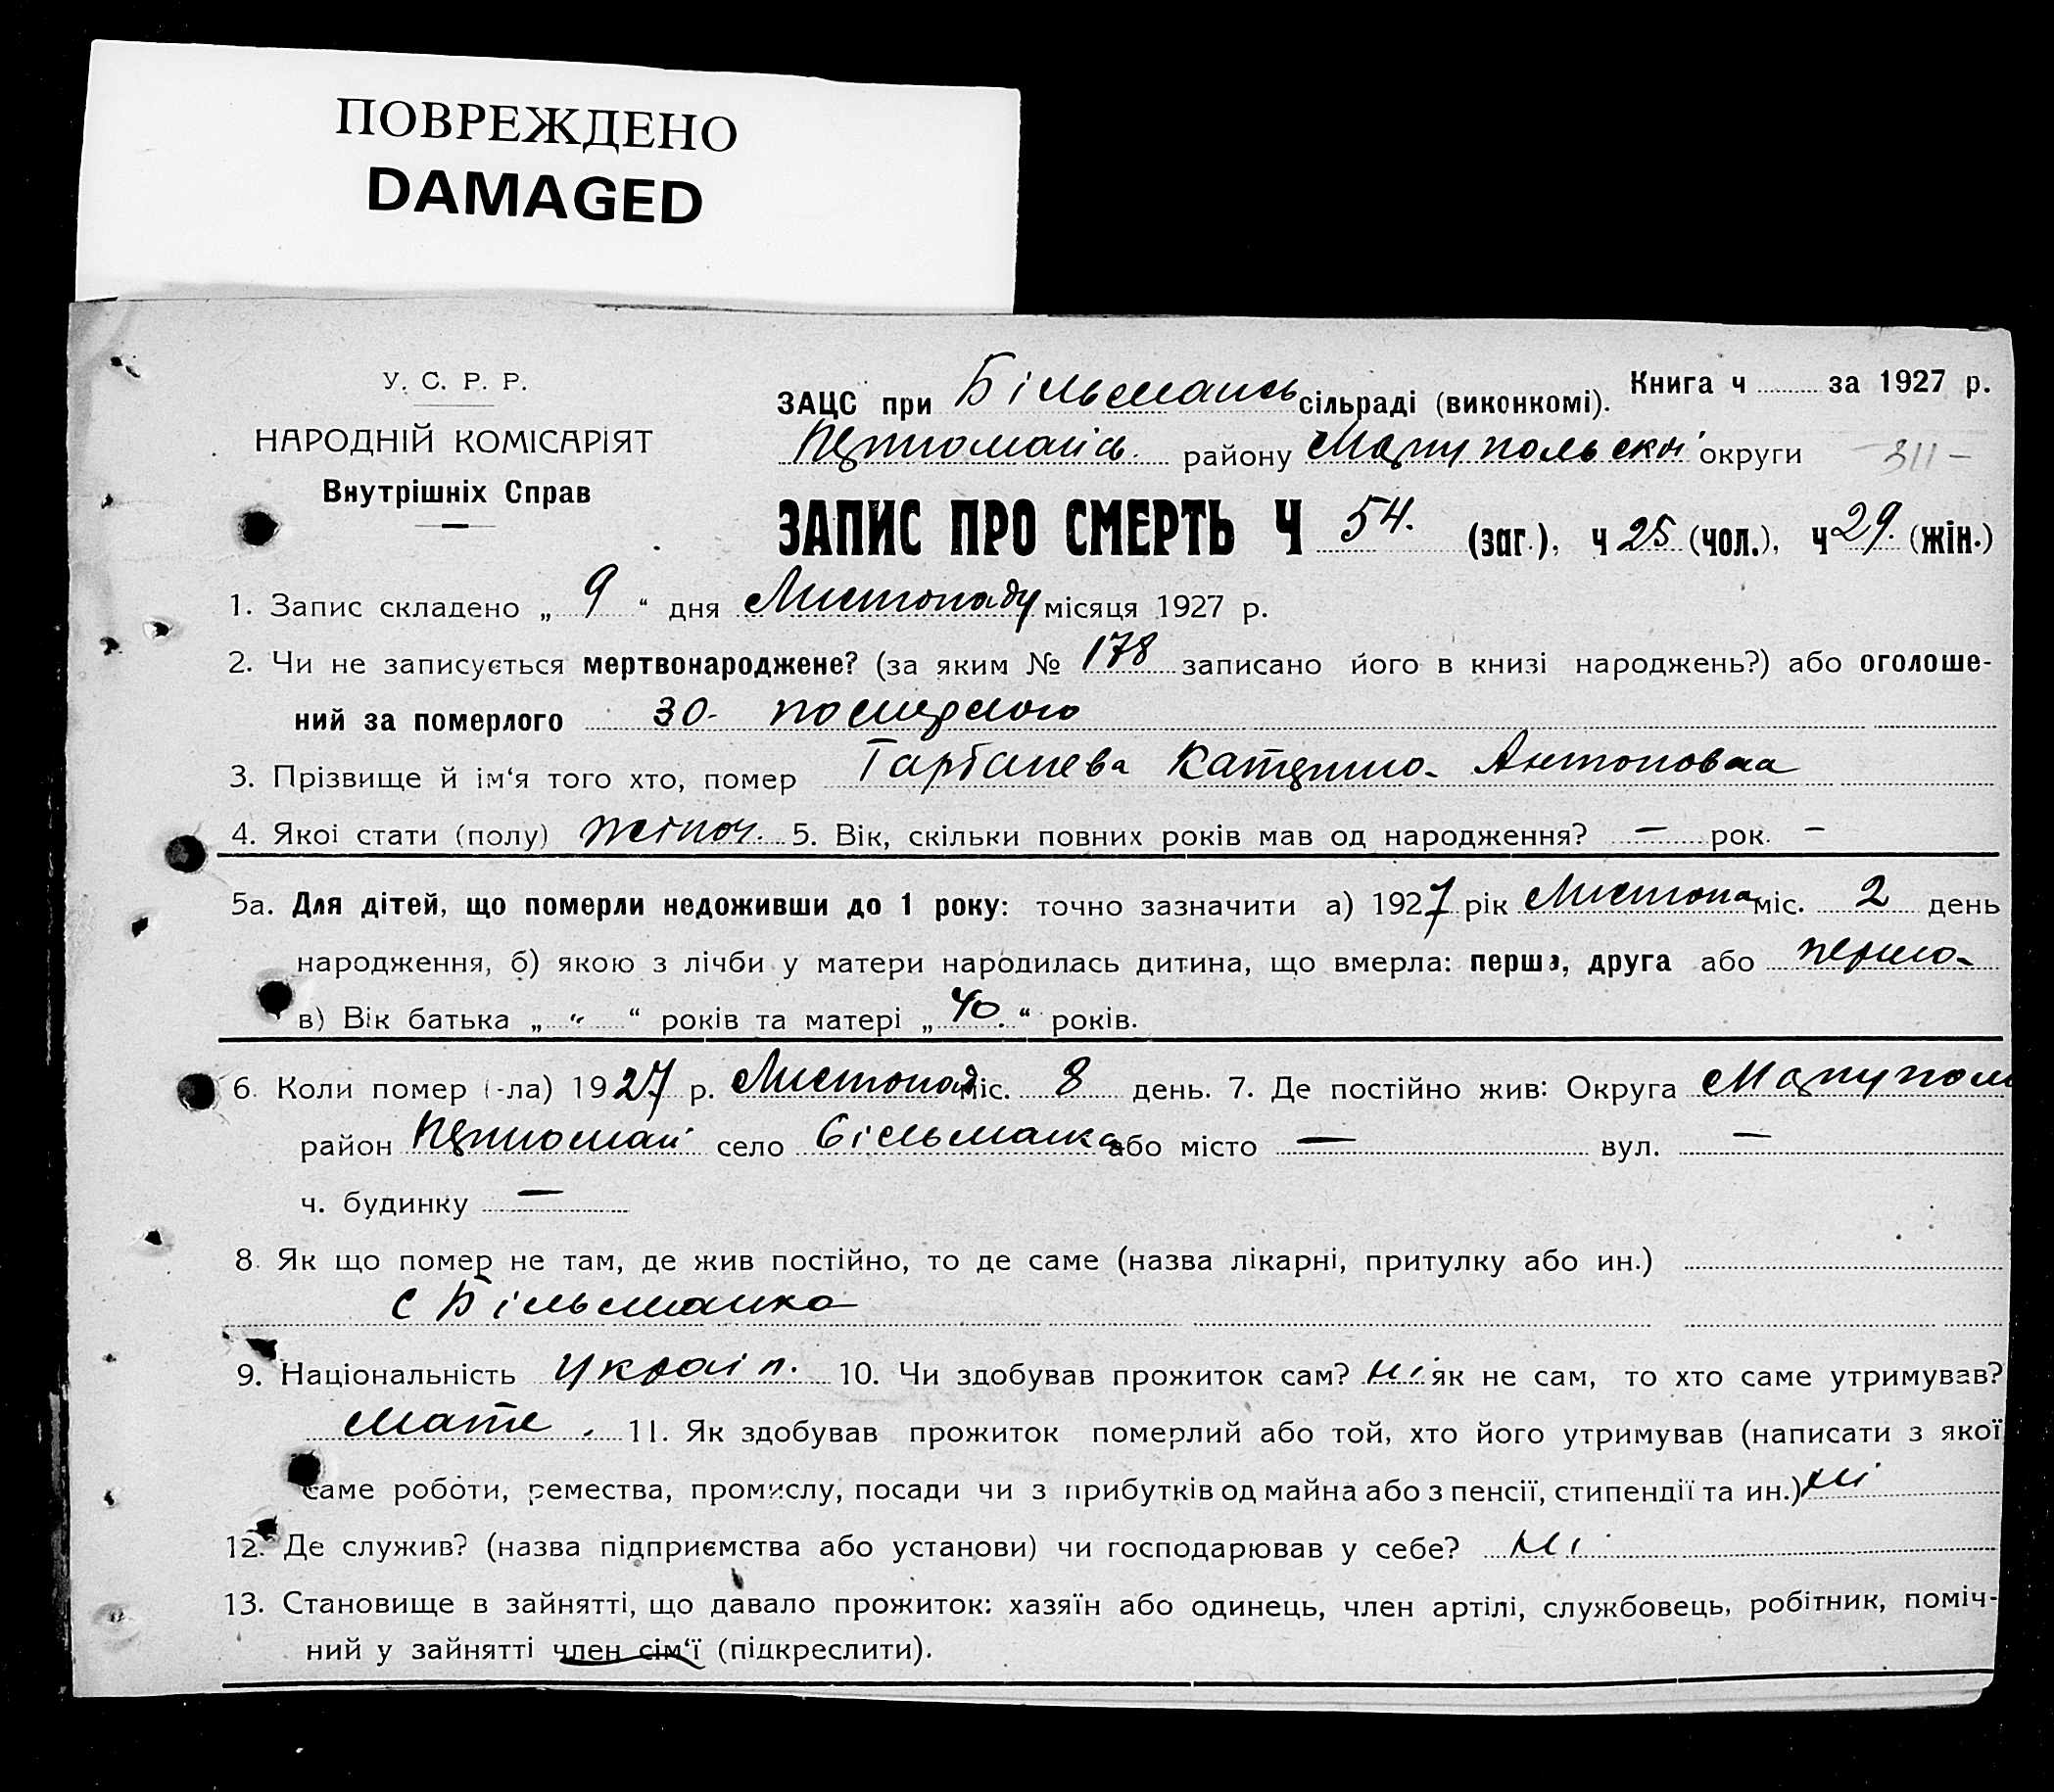 ПОВРЕЖДЕНО
DAMAGED
У. С. Р. Р.
НАРОДНІЙ КОМІСАРІЯТ
Внутрішніх Справ
Книга ч за 1927 р.
ЗАЦС при Більмансь сільраді (виконкомі).
району Маріупольскі округи 311 -
ЗАПИС ПРО СМЕРТЬ Ч 54. (заг.), ч 25 (чол.), ч 29. (жін.)
1. Запис складено „ 9 “ дня Листопаду місяця 1927 р.
2. Чи не записується мертвонароджене? (за яким № 178 записано його в книзі народжень?) або оголоше-
ний за померлого 30-
3. Прізвище й ім‘я того хто, помер Гарбанева Катерина Антоновна
4. Якоі стати (полу) жіноч. 5. Вік, скільки повних років мав од народження? — рок. —
5а. Для дітей, що померли недоживши до 1 року: точно зазначити а) 1927 рік Листопа міс. 2 день
народження, б) якою з лічби у матери народилась дитина, що вмерла: перша, друга або перша
в) Вік батька „ “ “ років та матері „ 40. “ років.
6. Коли помер (-ла) 1927 р. Листопад міс. 8 день. 7. Де постійно жив: Округа Маріупол
район село Більманка або місто — вул. —
ч. будинку —
8. Як що помер не там, де жив постійно, то де саме (назва лікарні, притулку або ин.)
с Більманка
9. Національність Україн. 10. Чи здобував прожиток сам? ні як не сам, то хто саме утримував?
мате. 11. Як здобував прожиток померлий або той, хто його утримував (написати з якої
саме роботи, ремества, промислу, посади чи з прибутків од майна або з пенсії, стипендії та ин.) ні
12. Де служив? (назва підприємства або установи) чи господарював у себе? ні
13. Становище в зайнятті, що давало прожиток: хазяїн або одинець, член артілі, службовець, робітник, поміч-
ний у зайнятті член сім‘ї (підкреслити).